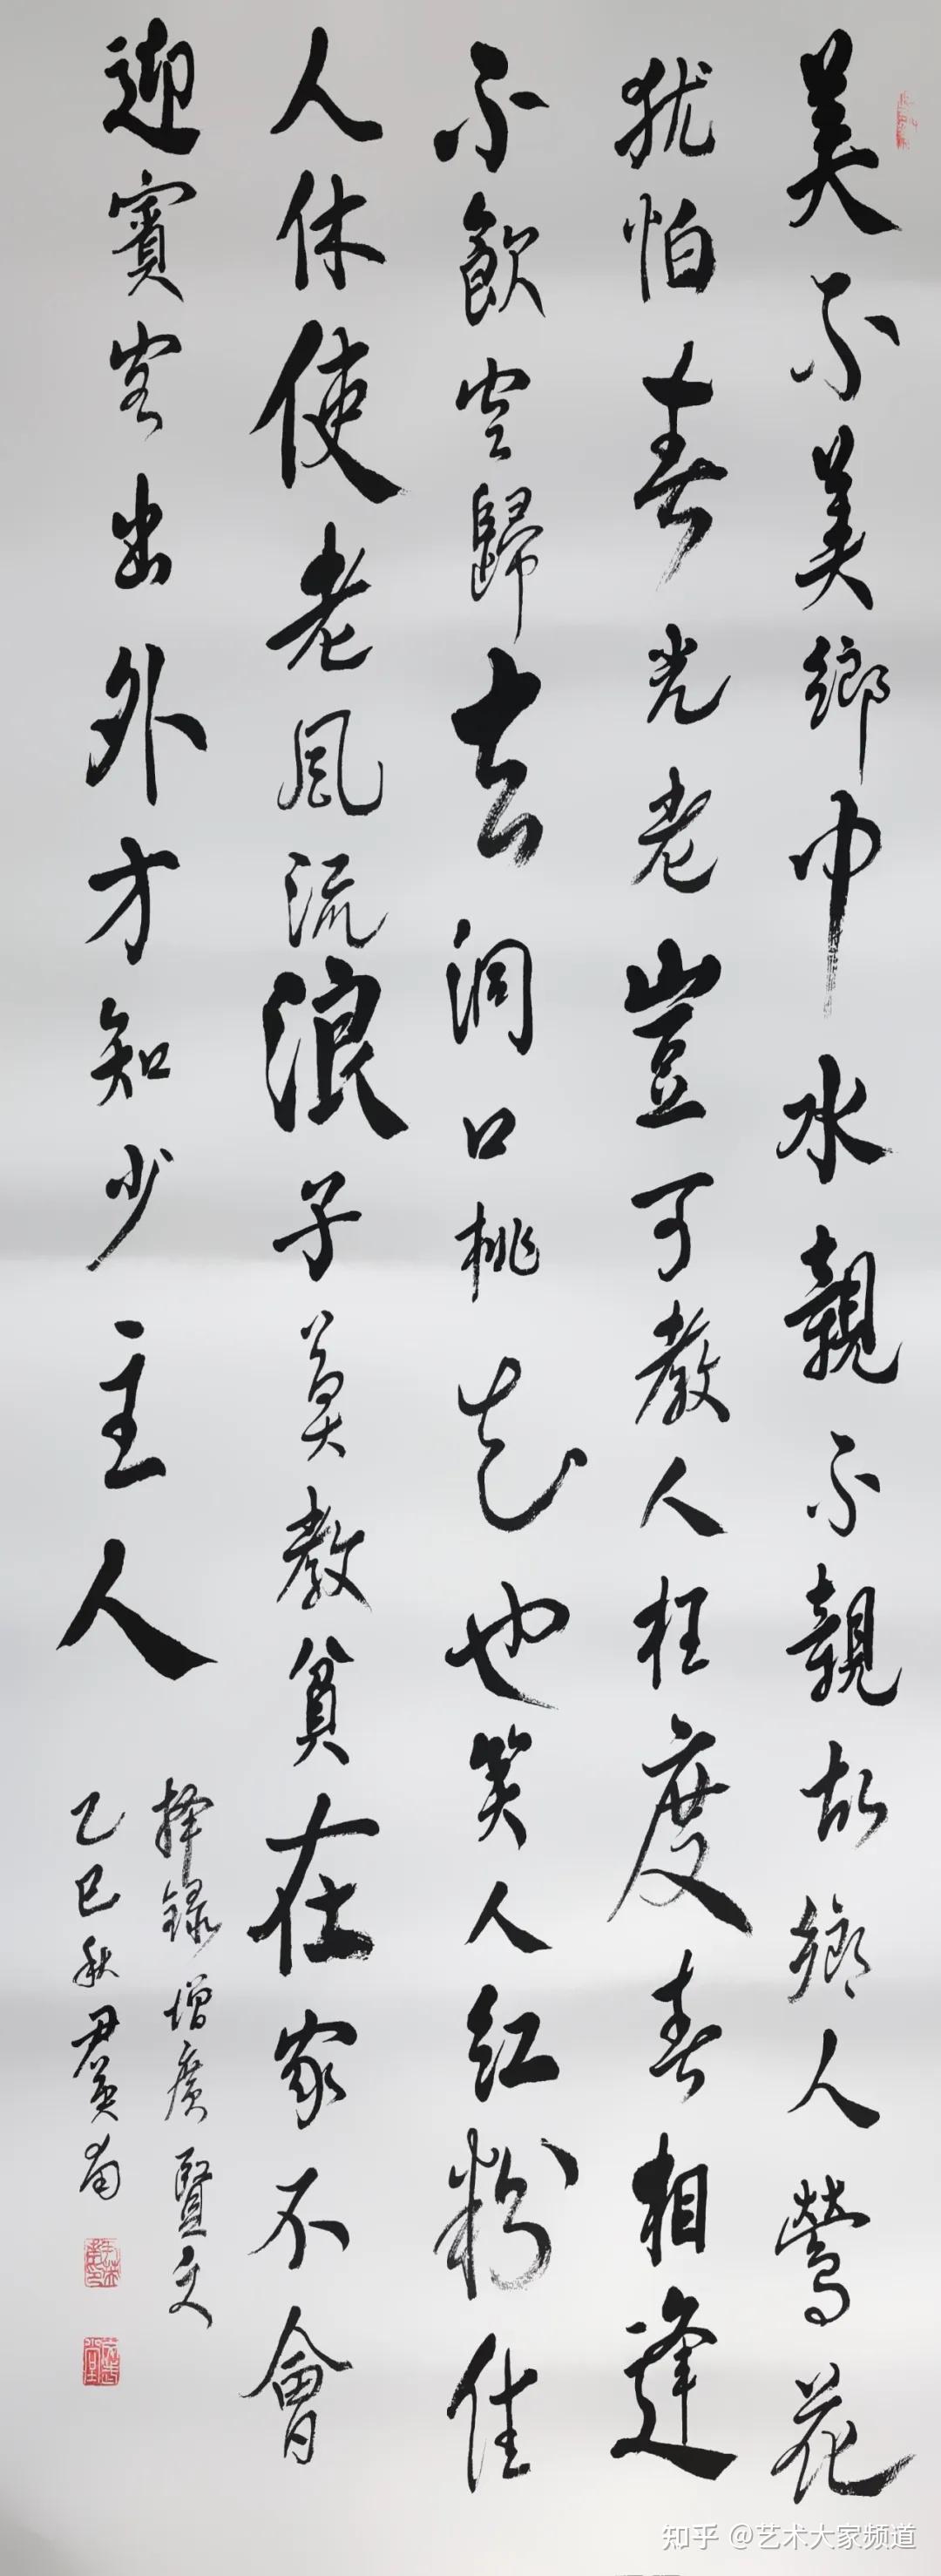 美不美鄉中水親不親故鄉人鶯花
犹怕春光老豈可教人枉度春相逢
不飲空歸去洞口桃花也笑人红粉佳
人休使老風流浪子莫教貧在家不會
迎賓客出外方知少主人
择録增廣賢文
乙巳秋尹
知乎 @艺术大家频道